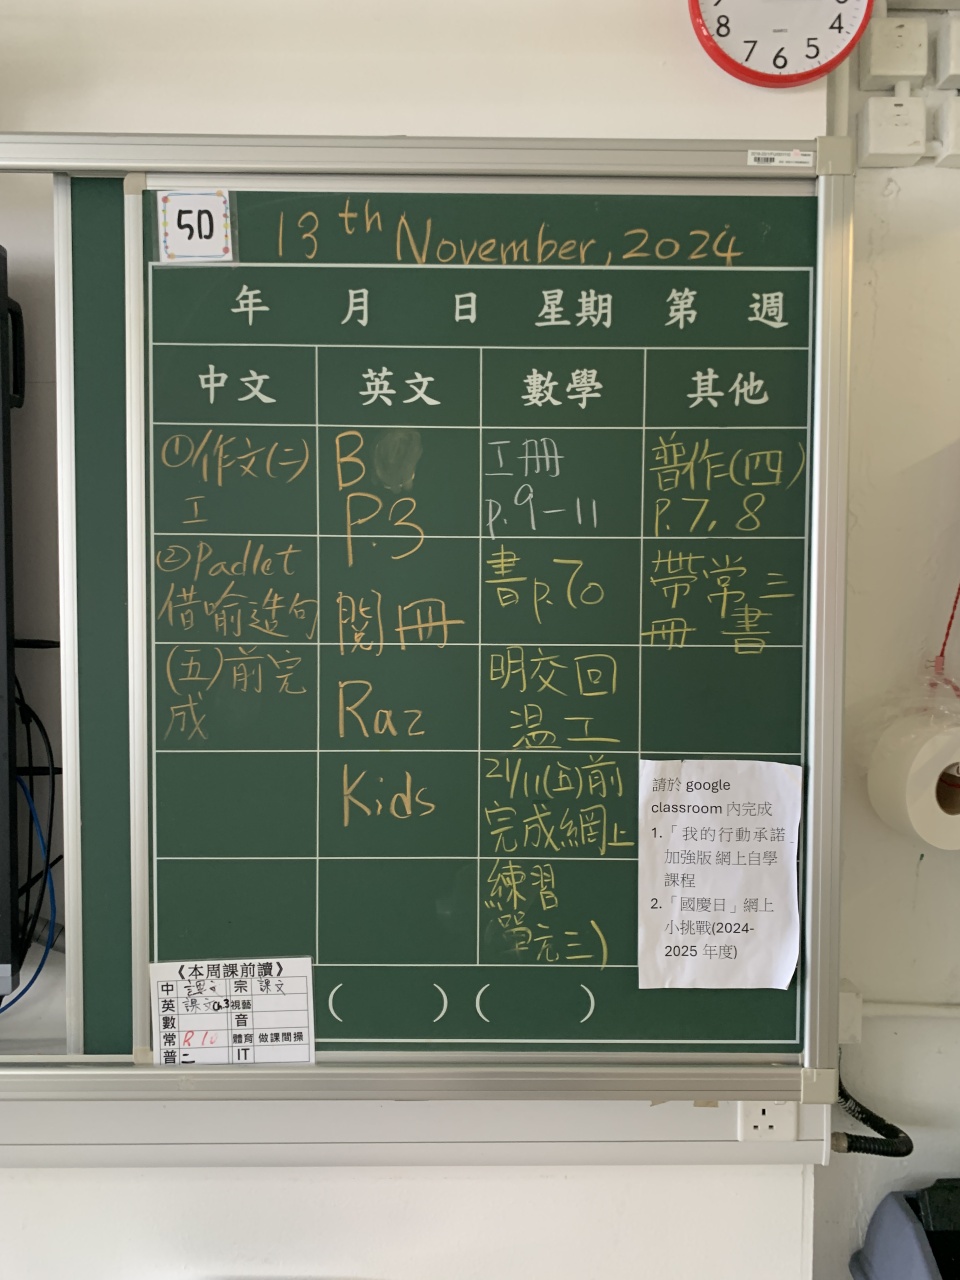 8 7 6 5 4
5D
13th November, 2024
年 月 日 星期 第 週
中文 英文 數學 其他
①作文(二)
工
②Padlet
借喻造句
(五)前完
成
B
P.3
閱冊
Raz
Kids
工冊
p.9-11
書p.70
明交回
溫工
21/11(五)前
完成網上
練習
單元三)
普作(四)
p.7, 8
帶常三
冊 書
請於 google
classroom 內完成
1.「我的行動承諾
加強版 網上自學
課程
2.「國慶日」網上
小挑戰(2024-
2025 年度)
《本周課前讀》
中 課文 宗 課文
英 課文 ch.3 視藝
數 音
常 R 10 體育 做課間操
普 二 IT
( ) ( )